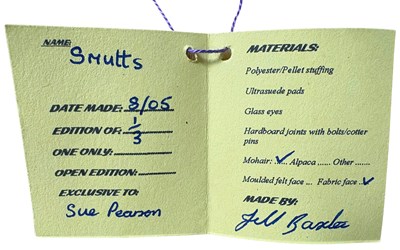 NAME:
Smutts
DATE MADE: 8/05
EDITION OF: 1/3
ONE ONLY:
OPEN EDITION:
EXCLUSIVE TO:
Sue Pearson
MATERIALS:
Polyester/Pellet stuffing
Ultrasuede pads
Glass eyes
Hardboard joints with bolts/cotter
pins
Mohair: ✓.... Alpaca ...... Other .......
Moulded felt face ... Fabric face ..✓
MADE BY:
Jill Baxter